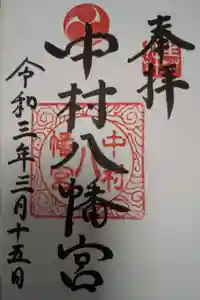 奉拝
中村八幡宮
令和三年三月十五日
中村
八
幡宮